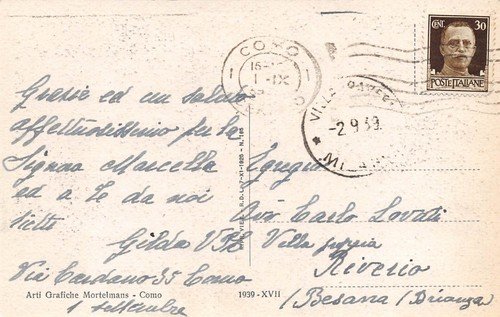 COMO
15
1 - IX
CENT. 30
POSTE ITALIANE
-2.9.39.
MI
Grazie ed un saluto
affettuosissimo per la
Signora Marcella
ed a Te da noi
tutti
Gilda
Via Cardano 35 Como
1 settembre
Egregio
Avv Carlo Lovati
Villa propria
Riverio
(Besana (Brianza)
Arti Grafiche Mortelmans - Como
1939 - XVII